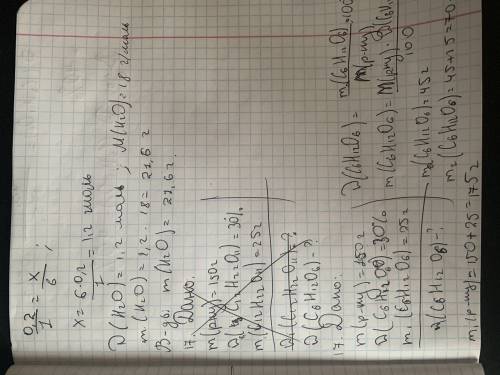 0,2/1 = x/6 ;
x = 6·0,2/1 = 1,2 моль
ν(H2O) = 1,2 моль ; M(H2O) = 18 г/моль
m(H2O) = 1,2 · 18 = 21,6 г
В-дь: m(H2O) = 21,6 г.
17. Дано:
m(р-ну) = 150 г
(C12H22O11) = 30%
m(C12H22O11) = 25 г
(C6H12O6) = ?
17. Дано:
m(р-ну) = 150 г
(C6H12O6) = 30%
m1(C6H12O6) = 25 г
(C6H12O6) = ?
(C6H12O6) = m(C6H12O6) · 100
m(р-ну)
m(C6H12O6) = m(р-ну) · (C6H12
100
m(C6H12O6) = 45 г
m2(C6H12O6) = 45+25 = 70
m1(р-ну) = 150 + 25 = 175 г